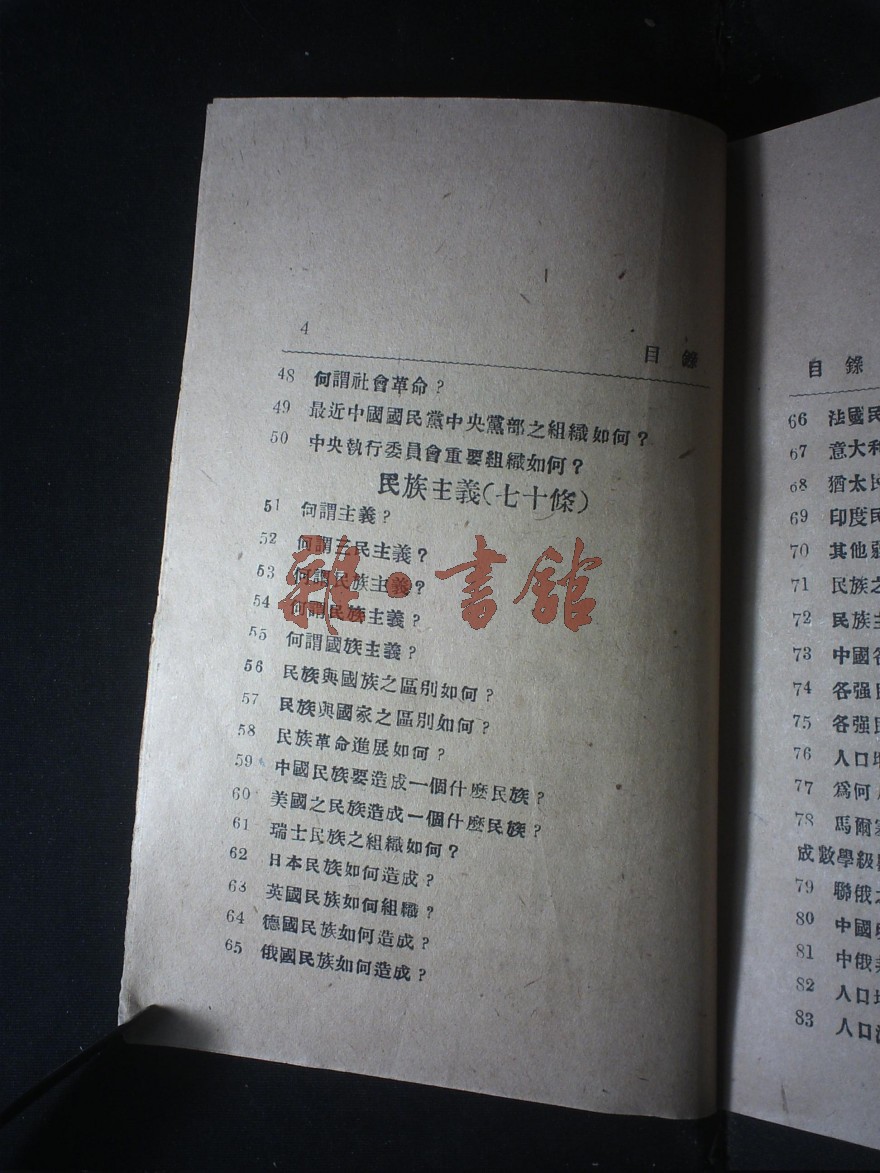 4
目錄
48 何謂社會革命?
49 最近中國國民黨中央黨部之組織如何?
50 中央執行委員會重要組織如何?
民族主義(七十條)
51 何謂主義?
52 何謂三民主義?
53 何謂民族主義?
54 何謂民族主義?
55 何謂國族主義?
56 民族與國族之區別如何?
57 民族與國家之區別如何?
58 民族革命進展如何?
59 中國民族要造成一個什麽民族?
60 美國之民族造成一個什麽民族?
61 瑞士民族之組織如何?
62 日本民族如何造成?
63 英國民族如何組織?
64 德國民族如何造成?
65 俄國民族如何造成?
雜·書館
目錄
66 法國民
67 意大利
68 猶太民
69 印度民
70 其他
71 民族之
72 民族主
73 中國各
74 各强民
75 各强民
76 人口增
77 爲何
78 馬爾塞
成數學級
79 聯俄之
80 中國與
81 中俄
82 人口增
83 人口